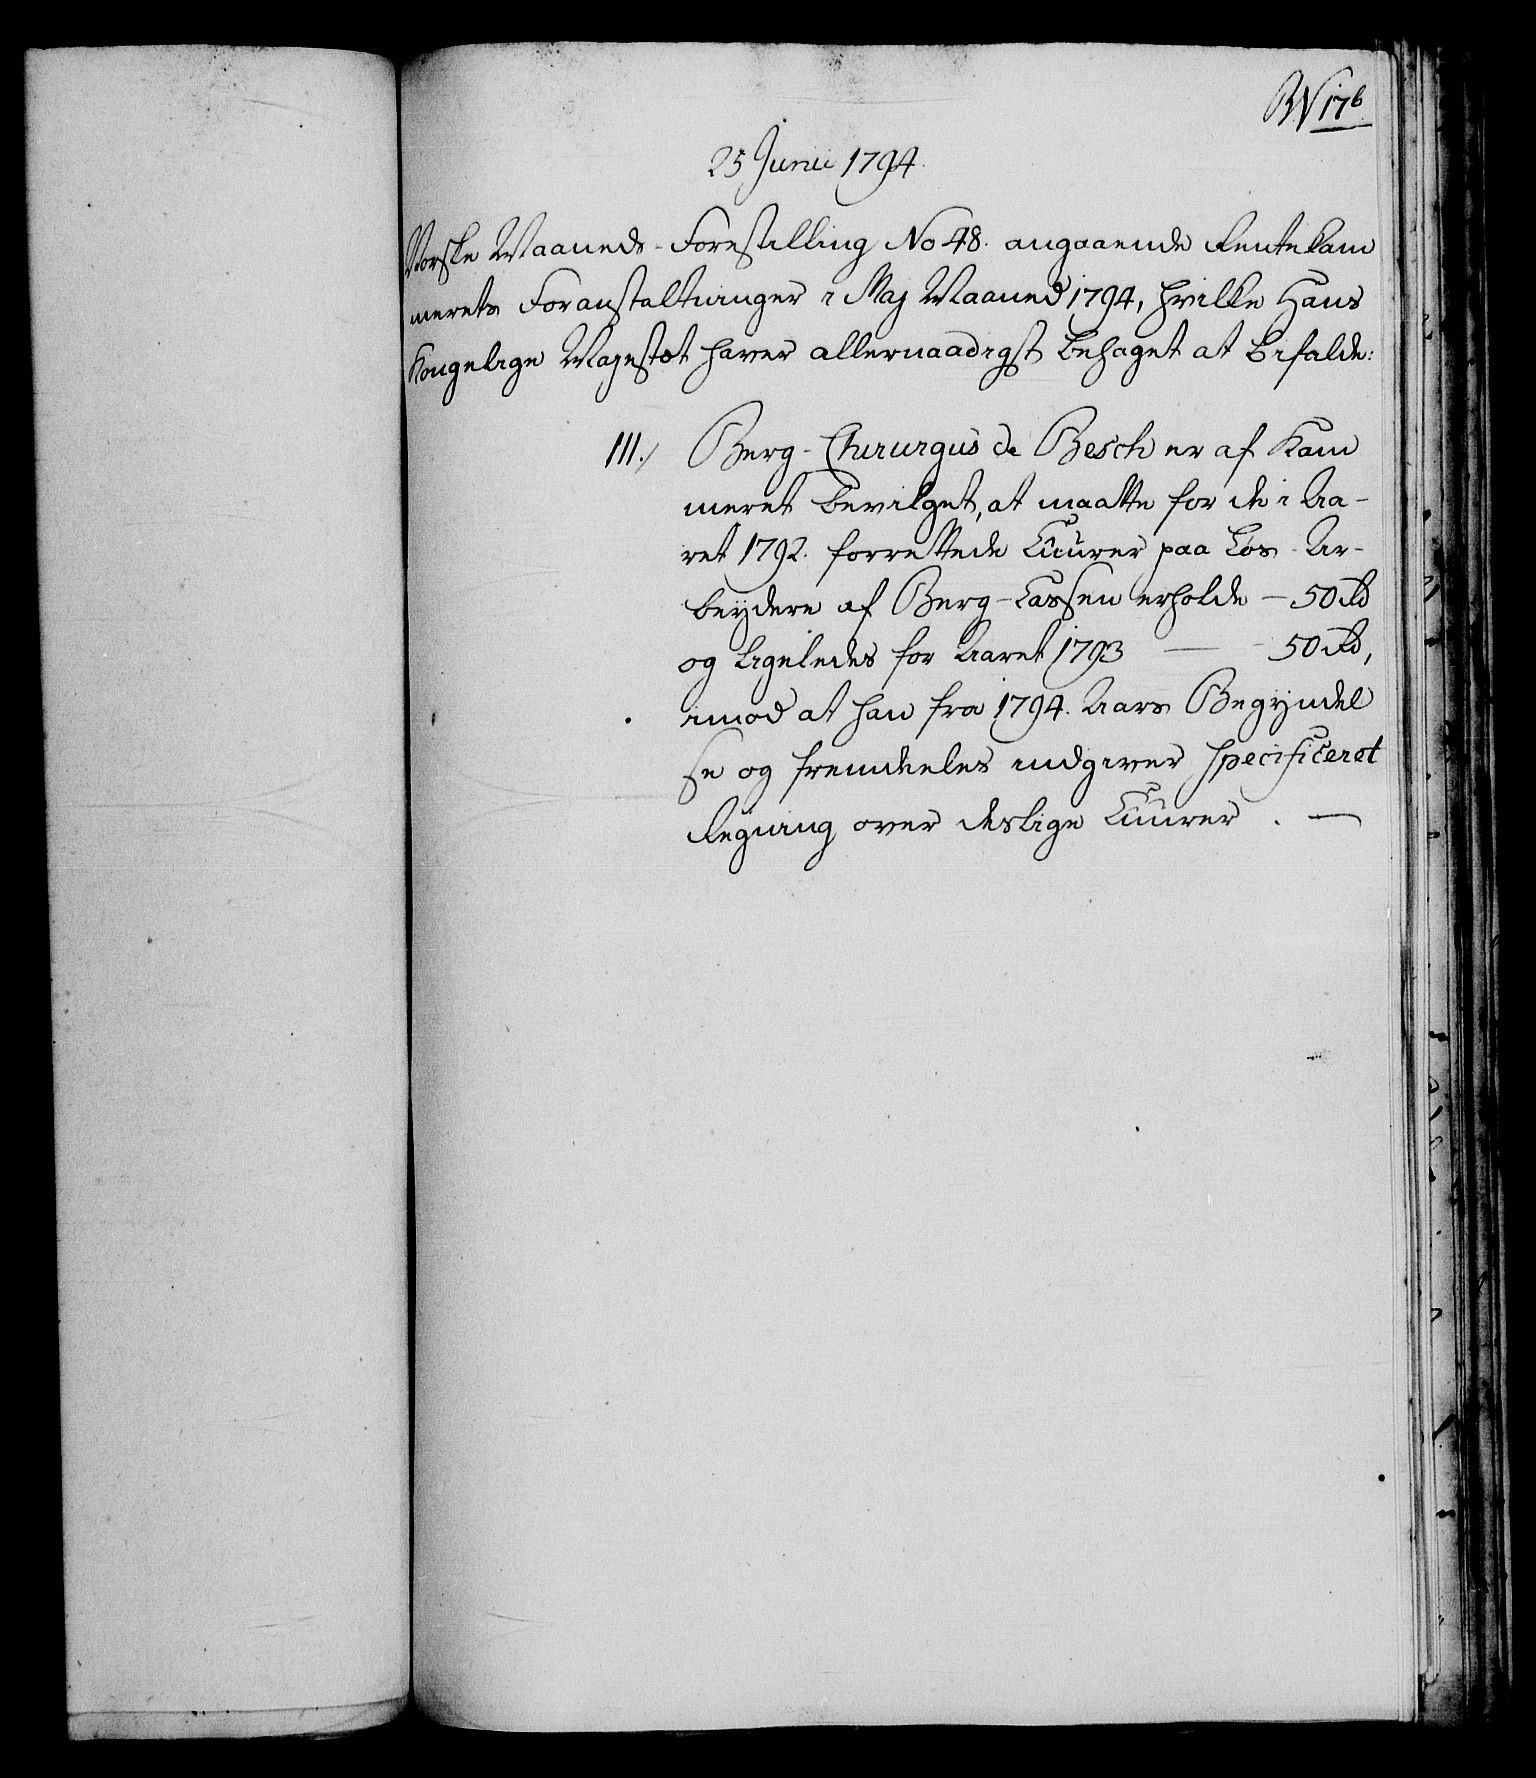 BN 176
25 Junii 1794.
Norske Maaneds-Forestilling No 48. angaaende Rentekam
merets Foranstaltninger i Maj Maaned 1794, hvilke Hans
Kongelige Majestæt haver allernaadigst behaget at bifalde:
111./ Berg-Chirurgus de Besch er af Kam
meret bevilget, at maatte for de i Aa-
ret 1792. forrettede Cuurer paa Løs-Ar-
beydere af Berg-Cassen erholde — 50 rd
og ligeledes for Aaret 1793 — - 50 rd,
imod at han fra 1794. Aars Begyndel
se og fremdeeles indgiver specificeret
Regning over deslige Cuurer. —